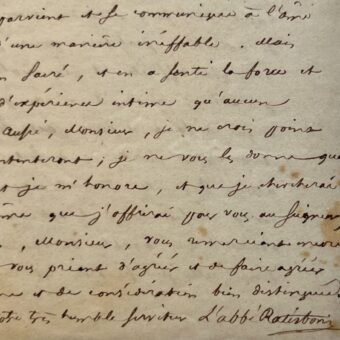 parvient et se communique à l'âme
d'une manière ineffable. Mais
sacré, et en a senti la force et
d'expérience intime qu'aucun
Aussi, Monsieur, je ne crois point
; je ne vous les donne que
je m'honore, et que je chercherai
que j'offrirai pour vous au Seigneur
, Monsieur, vous remerciant encore
vous priant d'agréer et de faire agréer
et de considération bien distinguée
très humble serviteur L'abbé Ratisbonne